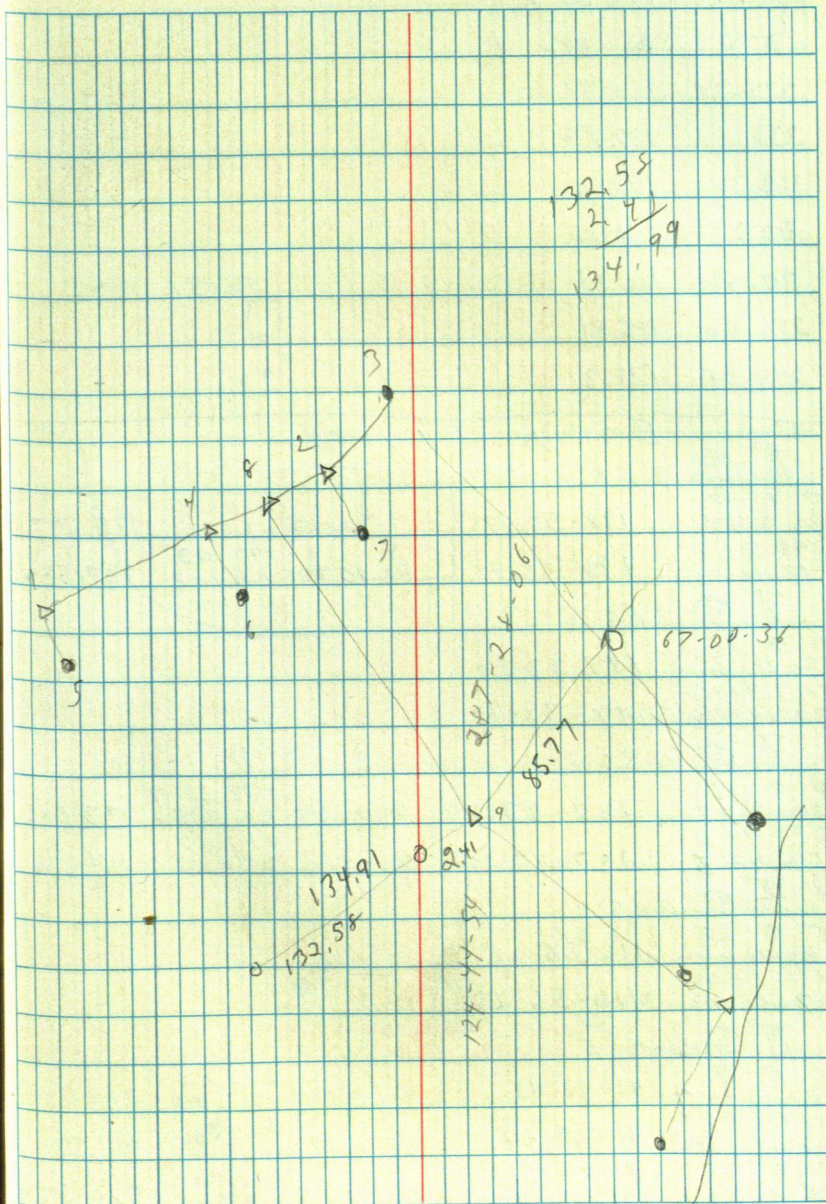 132.58
2.41
134.99
3
2
8
4
7
1
6
5
247-24-06
67-00-36
85.77
9
2.41
134.91
132.58
124-44-54